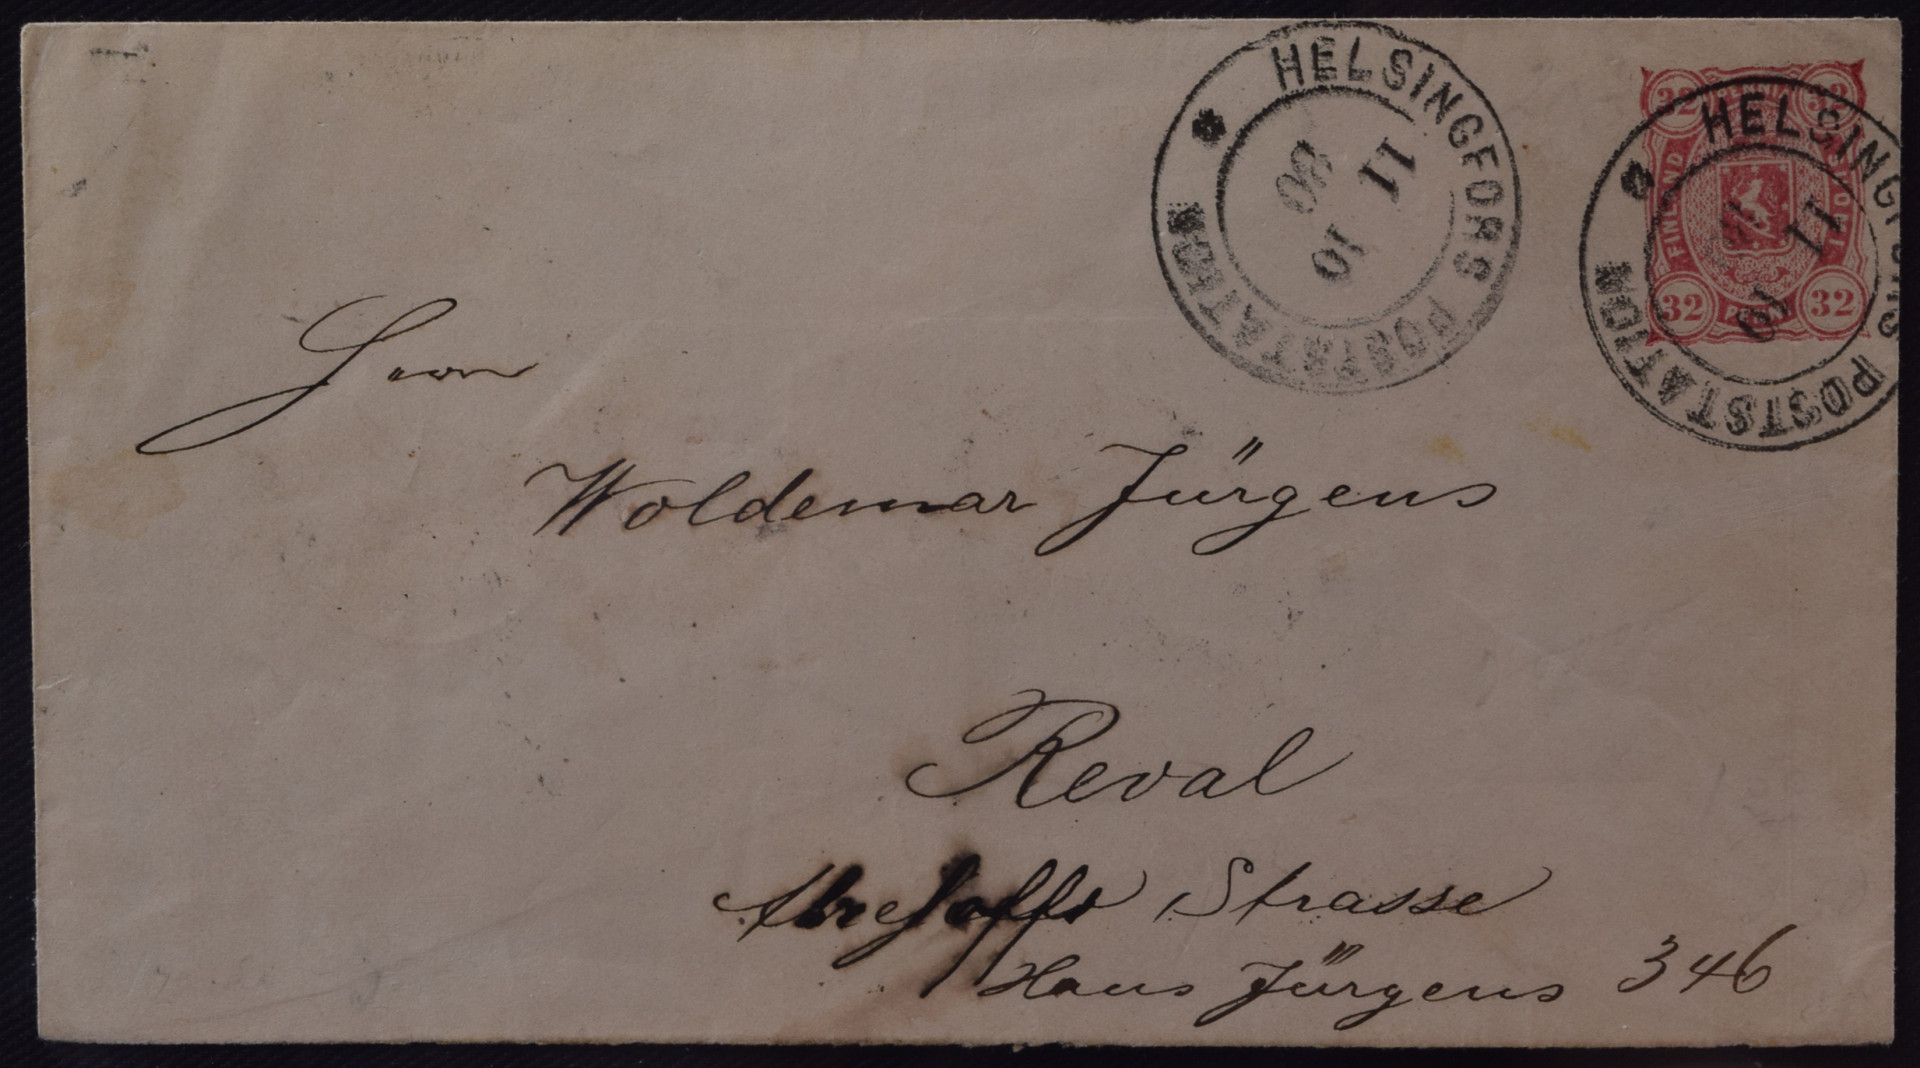 HELSINGFORS POSTSTATION
11
10
80
HELSINGFORS POSTSTATION
11
10
32
32
FINLAND
32 PENNI 32
Herrn
Woldemar Jürgens
Reval
Strasse
Haus Jürgens 346